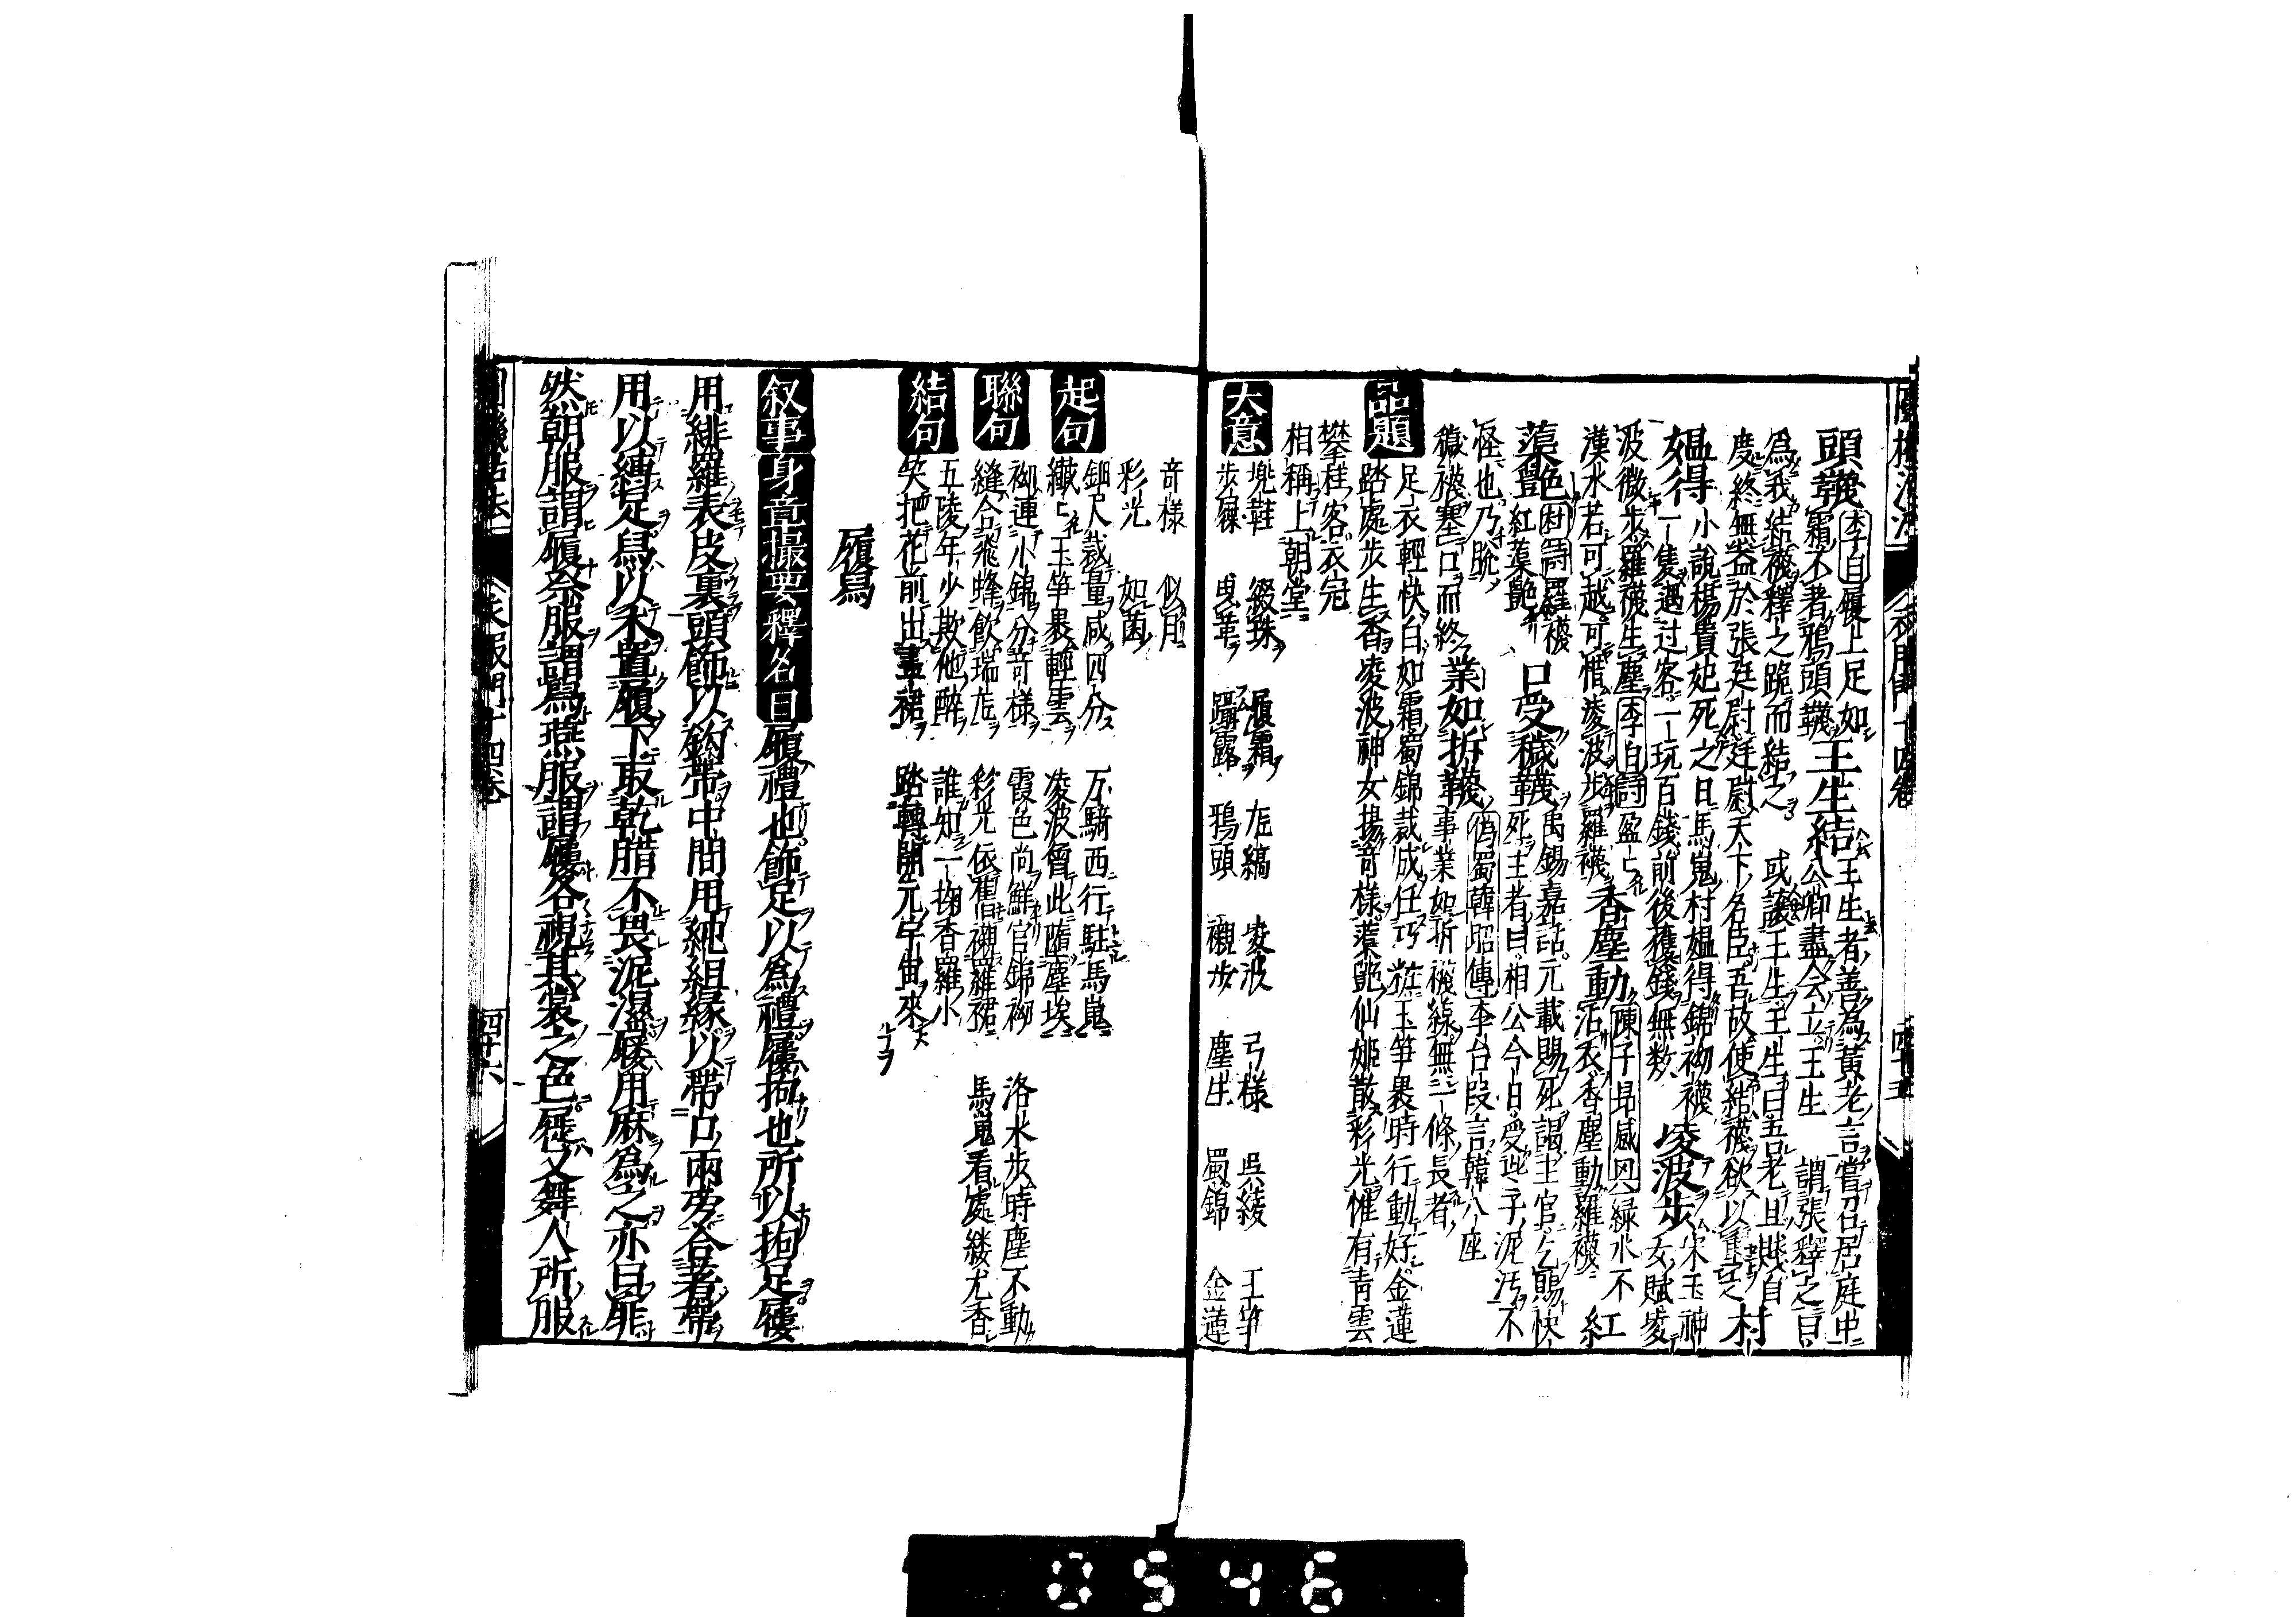 頭韈李白履上足如霜不著鴉頭韈王生結王生者善為黃老言嘗召居庭中公卿盡會立王生謂張釋之曰
為我結襪釋之跪而結之或讓王生王生曰吾老且賤自度終無益於張廷尉廷尉天下名臣吾故使結襪欲以重之村
媼得小說楊貴妃死之日馬嵬村媼得錦袎襪一隻遇过客一玩百錢前後獲錢無数凌波步宋玉神女賦凌
波微步羅襪生塵李白詩盈盈漢水若可越可惜凌波步羅襪香塵動陳子昂感思緑水不沾衣香塵動羅襪紅
蕖艷杜詩羅襪紅蕖艷口受穢韈禹錫嘉話元載賜死謁主官乞賜快死主者曰相公今日受些子泥污不
怪也乃脫穢襪塞口而終業如拆韈偽蜀韓昭傳李台段言韓八座事業如拆襪線無一條長者
品題足衣輕快白如霜蜀錦裁成任巧粧玉笋裹時行動好金蓮踏處步生香凌波神女揚奇樣蕖艷仙姬散彩光惟有青雲
攀桂客衣冠相稱上朝堂
大意兜鞋綴珠履霜尨縞凌波弓樣吳綾玉笋
步屧曳革躡露鴉頭襯步塵生蜀錦金蓮
奇樣似月
彩光如菌
起句鈿尺裁量減四分纖纖玉笋裹輕雲万騎西行駐馬嵬凌波曾此墮塵埃
聯句袎連小錦分奇樣縫合飛蜂飲瑞尨霞色尚鮮官錦袎彩光依舊襯羅裙洛水步時塵不動馬嵬看處縷尤香
結句五陵年少欺他醉笑把花前出畫裙誰知一掬香羅小踏轉開元宇宙來
履舄
叙事身章撮要釋名曰履禮也飾足以為禮屨拘也所以拘足屨
用緋羅表皮裏頭飾以鈎帶中間用純組緣以帶口兩旁合著帶
用以縛足舄以禾置履下取乾腊不畏泥濕屐用麻為之亦曰屝
然朝服謂履祭服謂舄燕服謂屨各視其裳之色屣又舞人所服